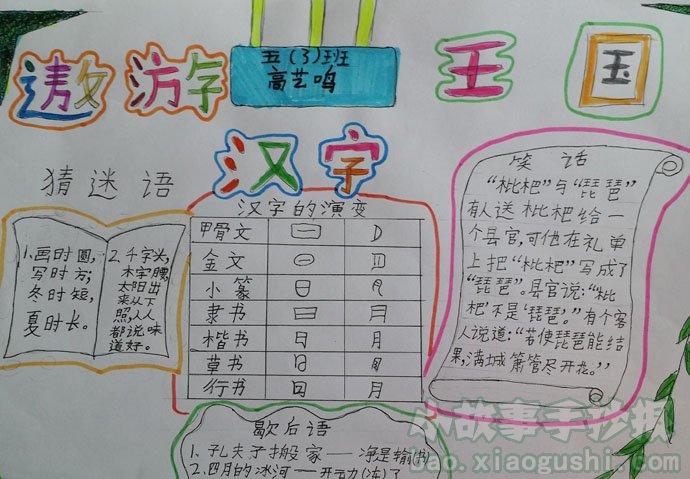 遨游
汉字
王国
五(3)班
高艺鸣
猜迷语
1.画时圆,
写时方;
冬时短,
夏时长。
2.千字头,
木字腰,
太阳出
来从下
照,人人
都说味
道好。
汉字的演变
甲骨文
金文
小篆
隶书
楷书 日 月
草书
行书
歇后语
1.孔夫子搬家——净是输(书)
2.四月的冰河——开动(冻)了
笑话
“枇杷”与“琵琶”
有人送枇杷给一
个县官,可他在礼单
上把“枇杷”写成了
“琵琶”。县官说:“枇
杷’不是‘琵琶’。”有个客
人说道:“若使琵琶能结
果,满城箫管尽开花。”
小故事手抄报
bao.xiaogushi.com